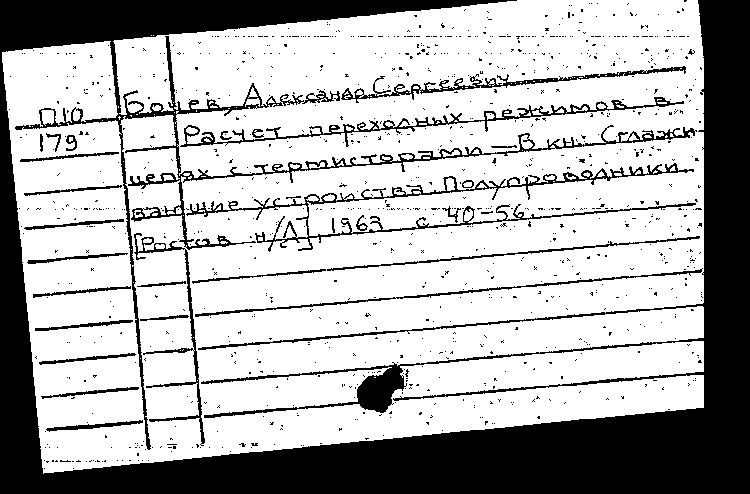 П10 Бочев, Александр Сергеевич
179 Расчет переходных режимов в
цепях с термисторами — В кн.: Сглажи-
вающие устройства. Полупроводники.
[Ростов н/Д], 1963 с. 40-56.